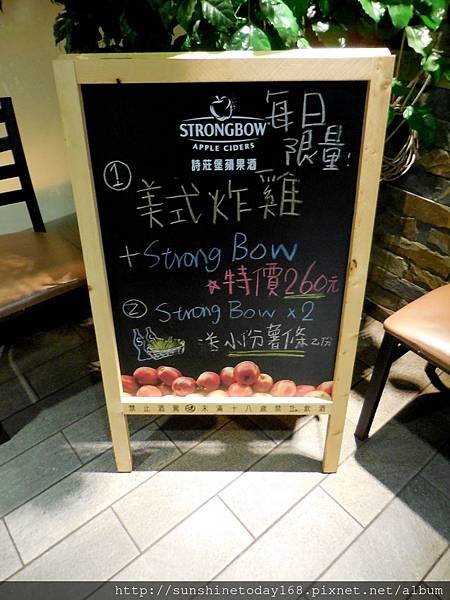 STRONGBOW
APPLE CIDERS
詩莊堡蘋果酒
每日
限量!
① 美式炸雞
+ Strong Bow
☆特價260元
② Strong Bow x 2
送小份薯條乙份
禁止酒駕 未滿十八歲禁止飲酒
http://sunshinetoday168.pixnet.net/album